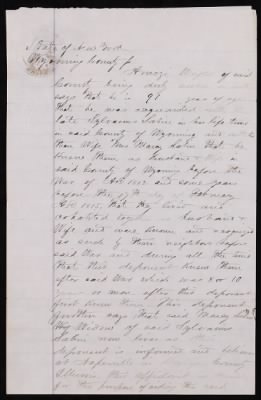 State of New York
Wyoming County
of said
County being duly
says that he is 91 years of age
that he was acquainted with
late Sylvanus Sabin in his life time
in said County of Wyoming and with
then wife Mrs Marcy Sabin that he
knew them as husband & wife in
said County of Wyoming before the
War of 1812 and some years
before the of February
1815, that they lived and
cohabited together husband &
wife and were known and recognized
as such by their neighbors before
said War and during all the time
that this deponent knew them
after said War which was 8 or 10
years or more after this deponent
first knew them. This deponent
further says that said Marcy Sabin
the Widow of said Sylvanus
Sabin now lives as this
deponent is informed and believes
at County
Illinois this
for the purpose of aiding the said